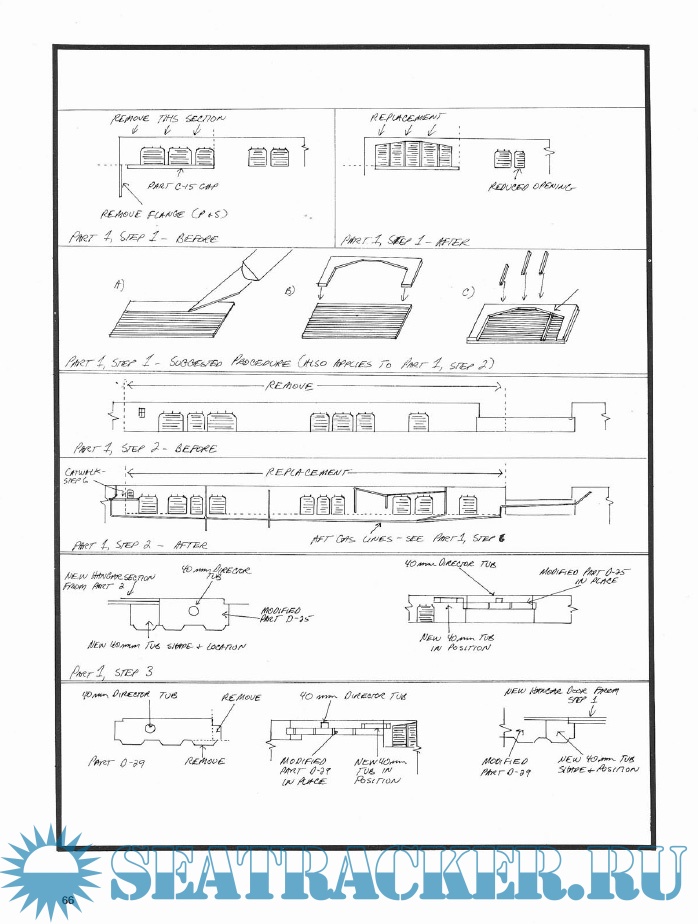 REMOVE THIS SECTION
PART C-15 GAP
REMOVE FLANGE (P+S)
PART 1, STEP 1 - BEFORE
REPLACEMENT
REDUCED OPENING
PART 1, STEP 1 - AFTER
A)
B)
C)
PART 1, STEP 1 - SUGGESTED PROCEDURE (ALSO APPLIES TO PART 1, STEP 2)
REMOVE
PART 1, STEP 2 - BEFORE
CATWALK-
STEP 6
REPLACEMENT
AFT GAS LINES - SEE PART 1, STEP 6
PART 1, STEP 2 - AFTER
NEW HANGAR SECTION
FROM PART 2
40mm DIRECTOR
TUB
MODIFIED
PART D-25
NEW 40mm TUB SHAPE + LOCATION
40mm DIRECTOR TUB
MODIFIED PART D-25
IN PLACE
NEW 40mm TUB
IN POSITION
PART 1, STEP 3
40mm DIRECTOR TUB
REMOVE
PART D-29
REMOVE
40 mm DIRECTOR TUB
MODIFIED
PART D-29
IN PLACE
NEW 40mm
TUB IN
POSITION
NEW HANGAR DOOR FROM
STEP 1
MODIFIED
PART D-29
NEW 40mm TUB
SHAPE + POSITION
66
SEATRACKER.RU